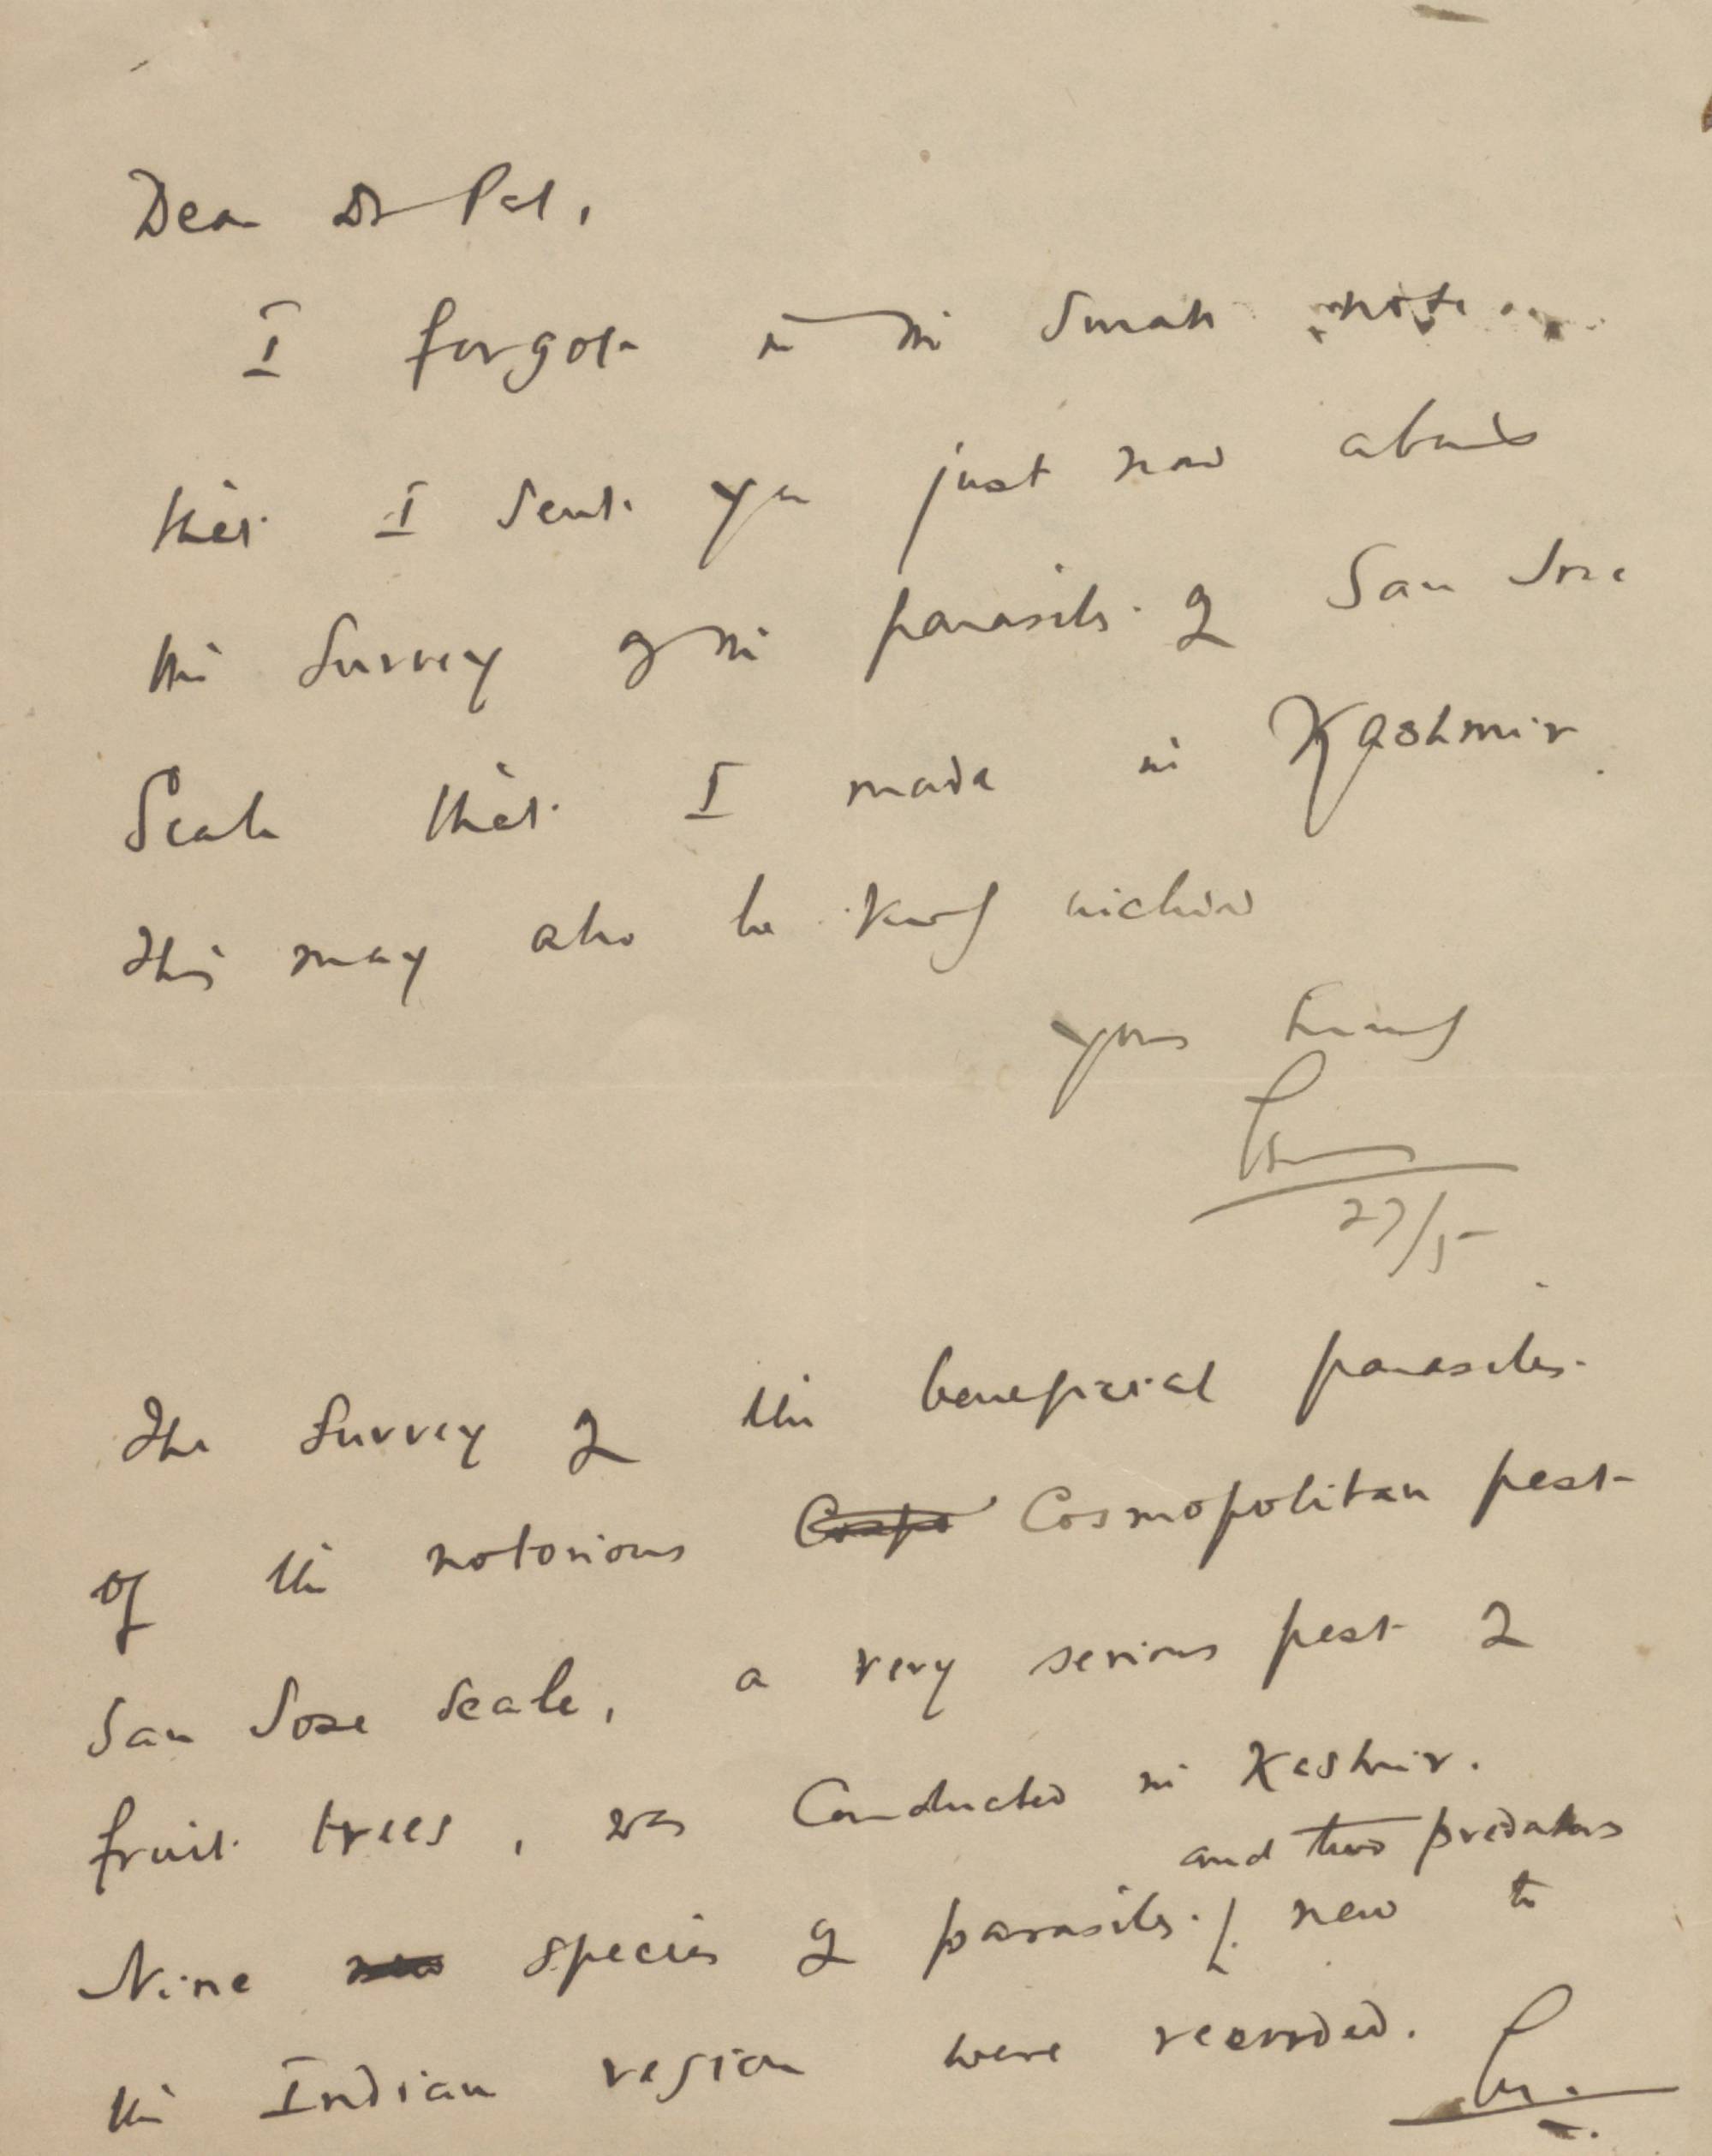 Dear Dr Pal,
I forgot in the small note
that I sent you just now about
the survey of the parasites of San Jose
Scale that I made in Kashmir.
This may also be kindly included
yours sincerely
27/5
The survey of the beneficial parasites
of the notorious Cosmopolitan pest
San Jose Scale, a very serious pest of
fruit trees, was Conducted in Kashmir.
and two predators
Nine new species of parasites / new to
the Indian region were recorded.